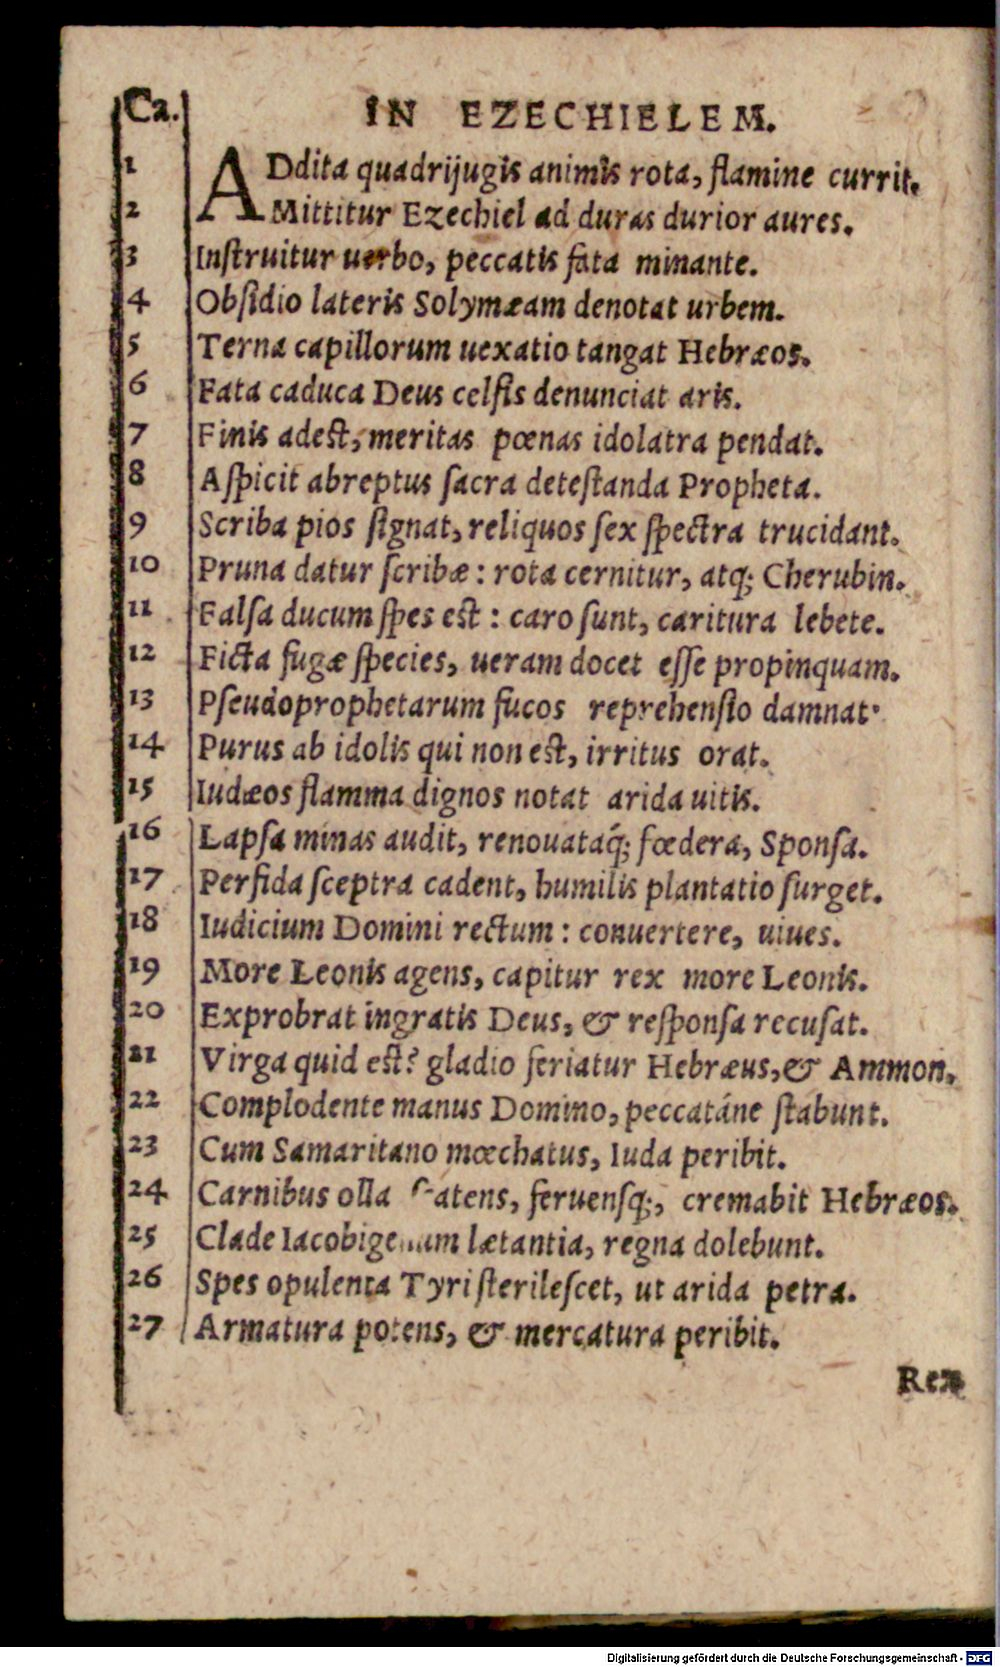 Ca. IN EZECHIELEM.
1 ADdita quadrijugis animis rota, flamine currit.
2 Mittitur Ezechiel ad duras durior aures.
3 Inſtruitur uerbo, peccatis fata minante.
4 Obſidio lateris Solymæam denotat urbem.
5 Terna capillorum uexatio tangat Hebræos.
6 Fata caduca Deus celſis denunciat aris.
7 Finis adeſt, meritas pœnas idolatra pendat.
8 Aſpicit abreptus ſacra deteſtanda Propheta.
9 Scriba pios ſignat, reliquos ſex ſpectra trucidant.
10 Pruna datur ſcribæ : rota cernitur, atq; Cherubin.
11 Falſa ducum ſpes eſt : caro ſunt, caritura lebete.
12 Ficta fugæ ſpecies, ueram docet eſſe propinquam.
13 Pſeudoprophetarum fucos reprehenſio damnat.
14 Purus ab idolis qui non eſt, irritus orat.
15 Iudæos flamma dignos notat arida uitis.
16 Lapſa minas audit, renouataq́; fœdera, Sponſa.
17 Perfida ſceptra cadent, humilis plantatio ſurget.
18 Iudicium Domini rectum : conuertere, uiues.
19 More Leonis agens, capitur rex more Leonis.
20 Exprobrat ingratis Deus, & reſponſa recuſat.
21 Virga quid eſt? gladio feriatur Hebræus, & Ammon.
22 Complodente manus Domino, peccatáne ſtabunt.
23 Cum Samaritano mœchatus, Iuda peribit.
24 Carnibus olla feruenſq;, cremabit Hebræos.
25 Clade Iacobigenum lætantia, regna dolebunt.
26 Spes opulenta Tyri ſterileſcet, ut arida petra.
27 Armatura potens, & mercatura peribit.
Rex
Digitalisierung gefördert durch die Deutsche Forschungsgemeinschaft - DFG